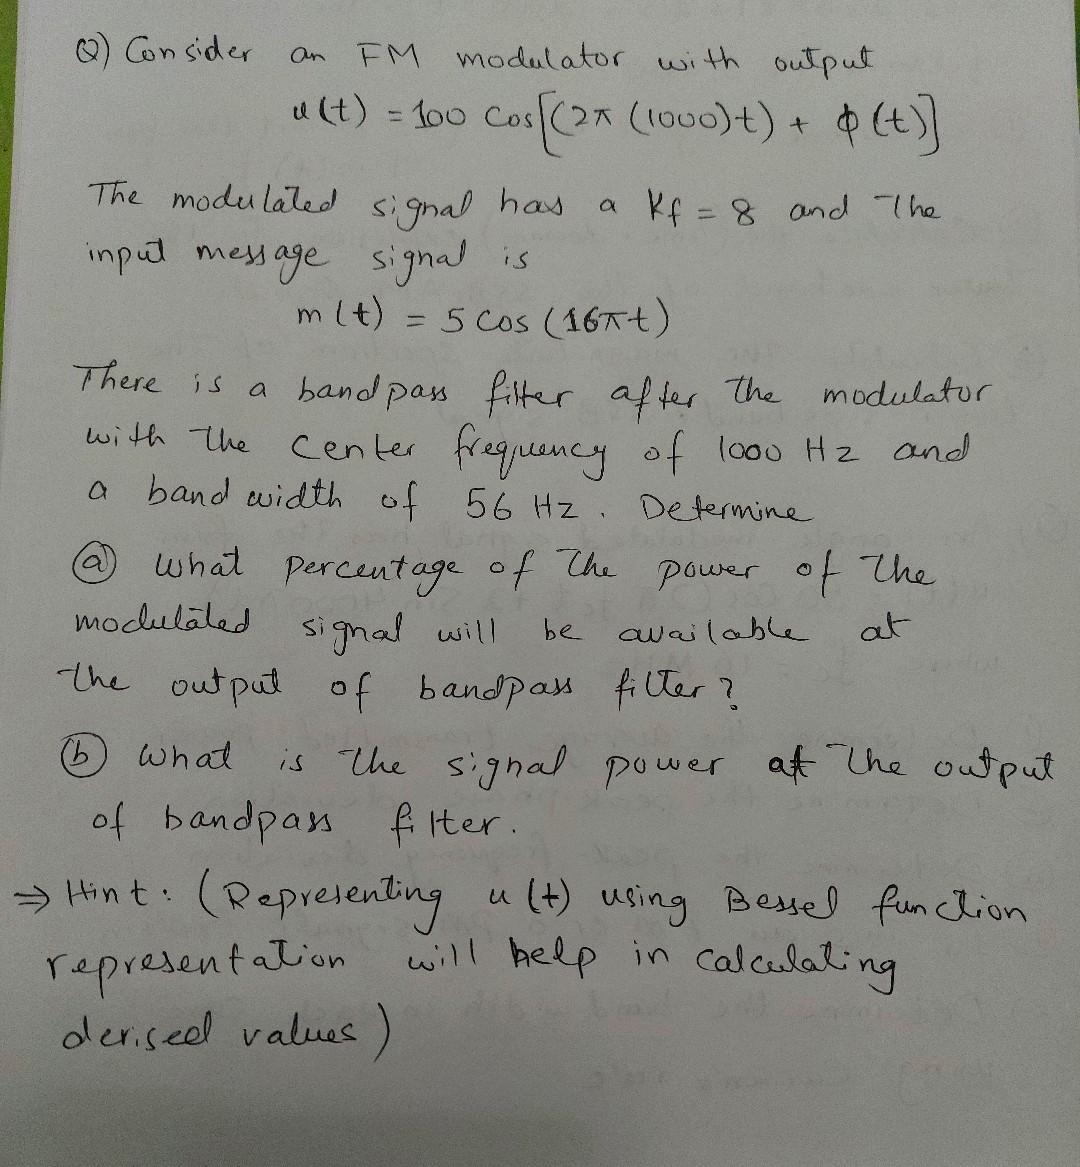 Q) Consider an FM modulator with output
u(t) = 100 Cos[(2π (1000)t) + ϕ(t)]
The modulated signal has a Kf = 8 and The
input message signal is
m(t) = 5 Cos (16πt)
There is a bandpass filter after The modulator
with The center frequency of 1000 Hz and
a bandwidth of 56 Hz. Determine
ⓐ What percentage of The power of The
modulated signal will be available at
the output of bandpass filter?
ⓑ What is The signal power at The output
of bandpass filter.
⇒ Hint: (Representing u(t) using Bessel function
representation will help in calculating
derised values)